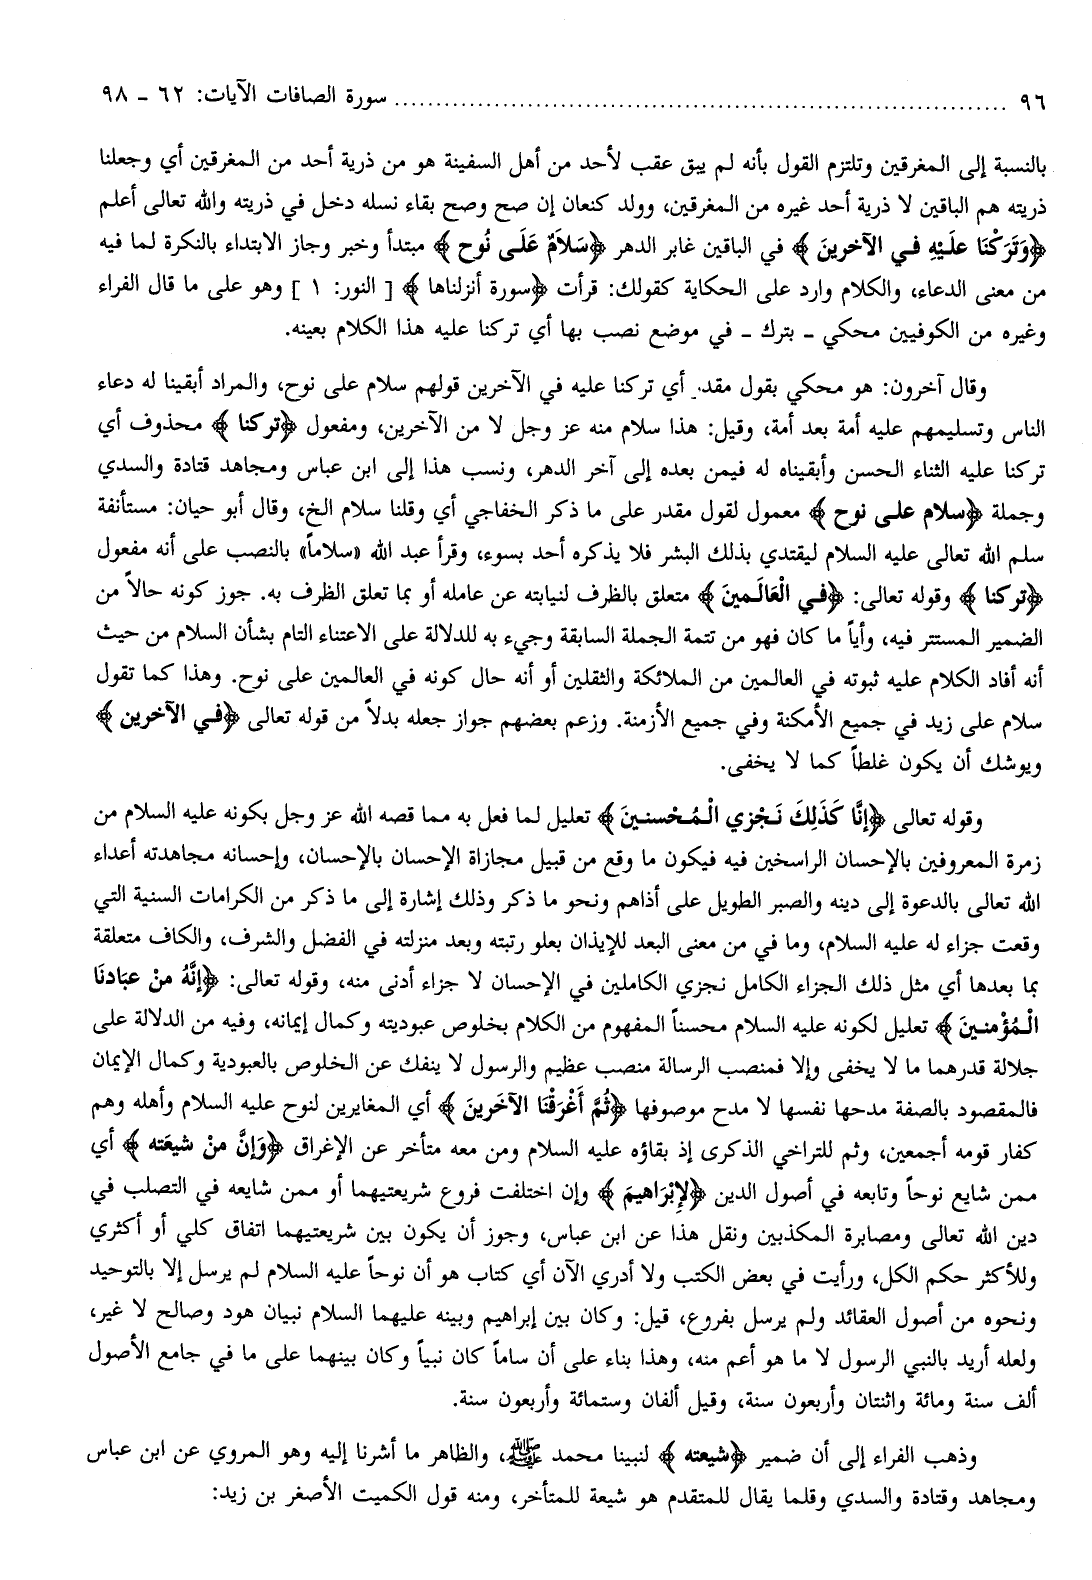 ٩٦ ............................................................ سورة الصافات الآيات: ٦٢ - ٩٨
بالنسبة إلى المغرقين وتلتزم القول بأنه لم يبق عقب لأحد من أهل السفينة هو من ذرية أحد من المغرقين أي وجعلنا
ذريته هم الباقين لا ذرية أحد غيره من المغرقين، وولد كنعان إن صح وصح بقاء نسله دخل في ذريته والله تعالى أعلم
﴿وَتَرَكْنَا عَلَيْهِ في الآخرينَ﴾ في الباقين غابر الدهر ﴿سَلاَمٌ عَلَى نُوح﴾ مبتدأ وخبر وجاز الابتداء بالنكرة لما فيه
من معنى الدعاء، والكلام وارد على الحكاية كقولك: قرأت ﴿سورة أنزلناها﴾ [النور: ١] وهو على ما قال الفراء
وغيره من الكوفيين محكي ـ بترك ـ في موضع نصب بها أي تركنا عليه هذا الكلام بعينه.
وقال آخرون: هو محكي بقول مقدر أي تركنا عليه في الآخرين قولهم سلام على نوح، والمراد أبقينا له دعاء
الناس وتسليمهم عليه أمة بعد أمة، وقيل: هذا سلام منه عز وجل لا من الآخرين، ومفعول ﴿تركنا﴾ محذوف أي
تركنا عليه الثناء الحسن وأبقيناه له فيمن بعده إلى آخر الدهر، ونسب هذا إلى ابن عباس ومجاهد قتادة والسدي
وجملة ﴿سلام على نوح﴾ معمول لقول مقدر على ما ذكر الخفاجي أي وقلنا سلام الخ، وقال أبو حيان: مستأنفة
سلم الله تعالى عليه السلام ليقتدي بذلك البشر فلا يذكره أحد بسوء، وقرأ عبد الله «سلاماً» بالنصب على أنه مفعول
﴿تركنا﴾ وقوله تعالى: ﴿في الْعَالَمينَ﴾ متعلق بالظرف لنيابته عن عامله أو بما تعلق الظرف به. جوز كونه حالاً من
الضمير المستتر فيه، وأياً ما كان فهو من تتمة الجملة السابقة وجيء به للدلالة على الاعتناء التام بشأن السلام من حيث
أنه أفاد الكلام عليه ثبوته في العالمين من الملائكة والثقلين أو أنه حال كونه في العالمين على نوح. وهذا كما تقول
سلام على زيد في جميع الأمكنة وفي جميع الأزمنة. وزعم بعضهم جواز جعله بدلاً من قوله تعالى ﴿في الآخرين﴾
ويوشك أن يكون غلطاً كما لا يخفى.
وقوله تعالى ﴿إنَّا كَذَلِكَ نَجْزي الْمُحْسنينَ﴾ تعليل لما فعل به مما قصه الله عز وجل بكونه عليه السلام من
زمرة المعروفين بالإحسان الراسخين فيه فيكون ما وقع من قبيل مجازاة الإحسان بالإحسان، وإحسانه مجاهدته أعداء
الله تعالى بالدعوة إلى دينه والصبر الطويل على أذاهم ونحو ما ذكر وذلك إشارة إلى ما ذكر من الكرامات السنية التي
وقعت جزاء له عليه السلام، وما في من معنى البعد للإيذان بعلو رتبته وبعد منزلته في الفضل والشرف، والكاف متعلقة
بما بعدها أي مثل ذلك الجزاء الكامل نجزي الكاملين في الإحسان لا جزاء أدنى منه، وقوله تعالى: ﴿إنَّهُ منْ عبَادنَا
الْمُؤْمنينَ﴾ تعليل لكونه عليه السلام محسناً المفهوم من الكلام بخلوص عبوديته وكمال إيمانه، وفيه من الدلالة على
جلالة قدرهما ما لا يخفى وإلا فمنصب الرسالة منصب عظيم والرسول لا ينفك عن الخلوص بالعبودية وكمال الإيمان
فالمقصود بالصفة مدحها نفسها لا مدح موصوفها ﴿ثُمَّ أَغْرَقْنَا الآخَرينَ﴾ أي المغايرين لنوح عليه السلام وأهله وهم
كفار قومه أجمعين، وثم للتراخي الذكرى إذ بقاؤه عليه السلام ومن معه متأخر عن الإغراق ﴿وَإنَّ منْ شيعَته﴾ أي
ممن شايع نوحاً وتابعه في أصول الدين ﴿لإبْرَاهيمَ﴾ وإن اختلفت فروع شريعتيهما أو ممن شايعه في التصلب في
دين الله تعالى ومصابرة المكذبين ونقل هذا عن ابن عباس، وجوز أن يكون بين شريعتيهما اتفاق كلي أو أكثري
وللأكثر حكم الكل، ورأيت في بعض الكتب ولا أدري الآن أي كتاب هو أن نوحاً عليه السلام لم يرسل إلا بالتوحيد
ونحوه من أصول العقائد ولم يرسل بفروع، قيل: وكان بين إبراهيم وبينه عليهما السلام نبيان هود وصالح لا غير،
ولعله أريد بالنبي الرسول لا ما هو أعم منه، وهذا بناء على أن ساماً كان نبياً وكان بينهما على ما في جامع الأصول
ألف سنة ومائة واثنتان وأربعون سنة، وقيل ألفان وستمائة وأربعون سنة.
وذهب الفراء إلى أن ضمير ﴿شيعته﴾ لنبينا محمد ﷺ، والظاهر ما أشرنا إليه وهو المروي عن ابن عباس
ومجاهد وقتادة والسدي وقلما يقال للمتقدم هو شيعة للمتأخر، ومنه قول الكميت الأصغر بن زيد: